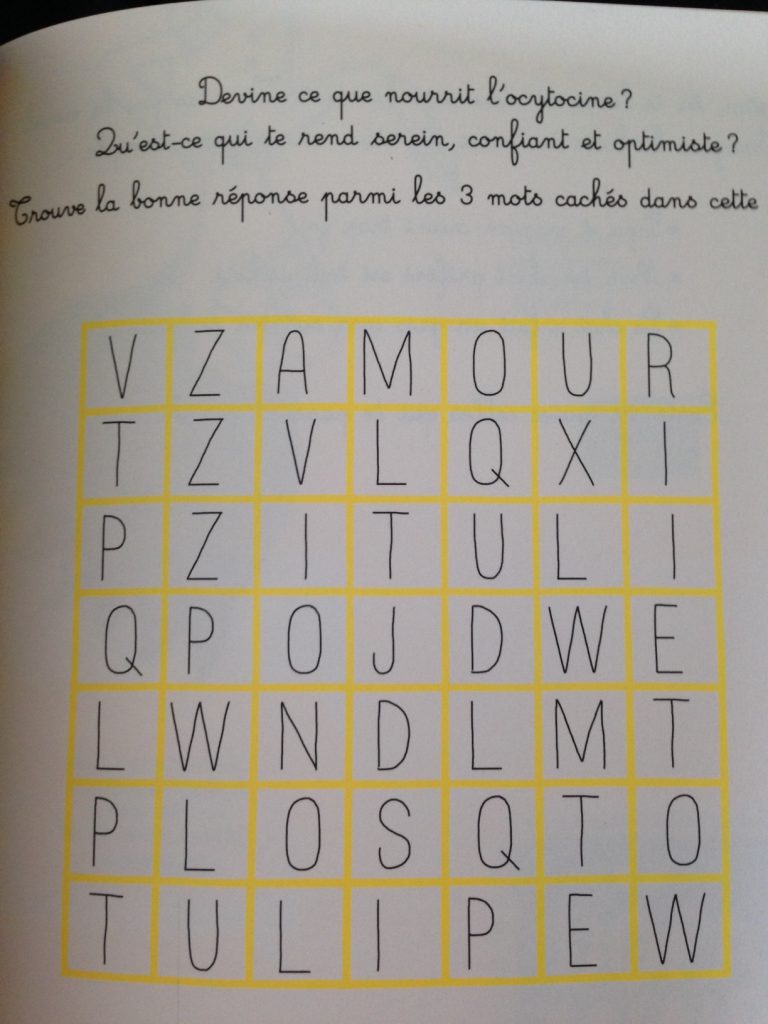 Devine ce que nourrit l'ocytocine ?
Qu'est-ce qui te rend serein, confiant et optimiste ?
Trouve la bonne réponse parmi les 3 mots cachés dans cette
V Z A M O U R
T Z V L Q X I
P Z I T U L I
Q P O J D W E
L W N D L M T
P L O S Q T O
T U L I P E W